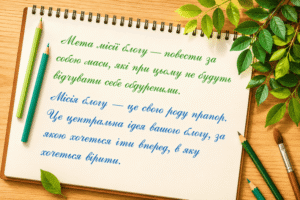 Мета місії блогу — повести за
собою маси, які при цьому не будуть
відчувати себе обдуреними.
Місія блогу — це свого роду прапор.
Це центральна ідея вашого блогу, за
якою хочеться іти вперед, в яку
хочеться вірити.